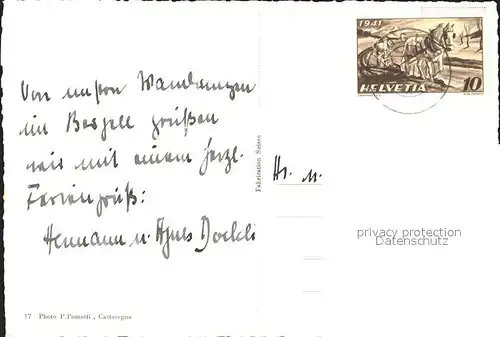 Von unsern Wanderungen
im Bergell grüßen
wir mit einem herzl.
Feriengruß:
Hermann u. Agnes
17 Photo P.Pometti , Castasegna
Fabrication Suisse
1941
HELVETIA 10
Hr. u.
privacy protection
Datenschutz